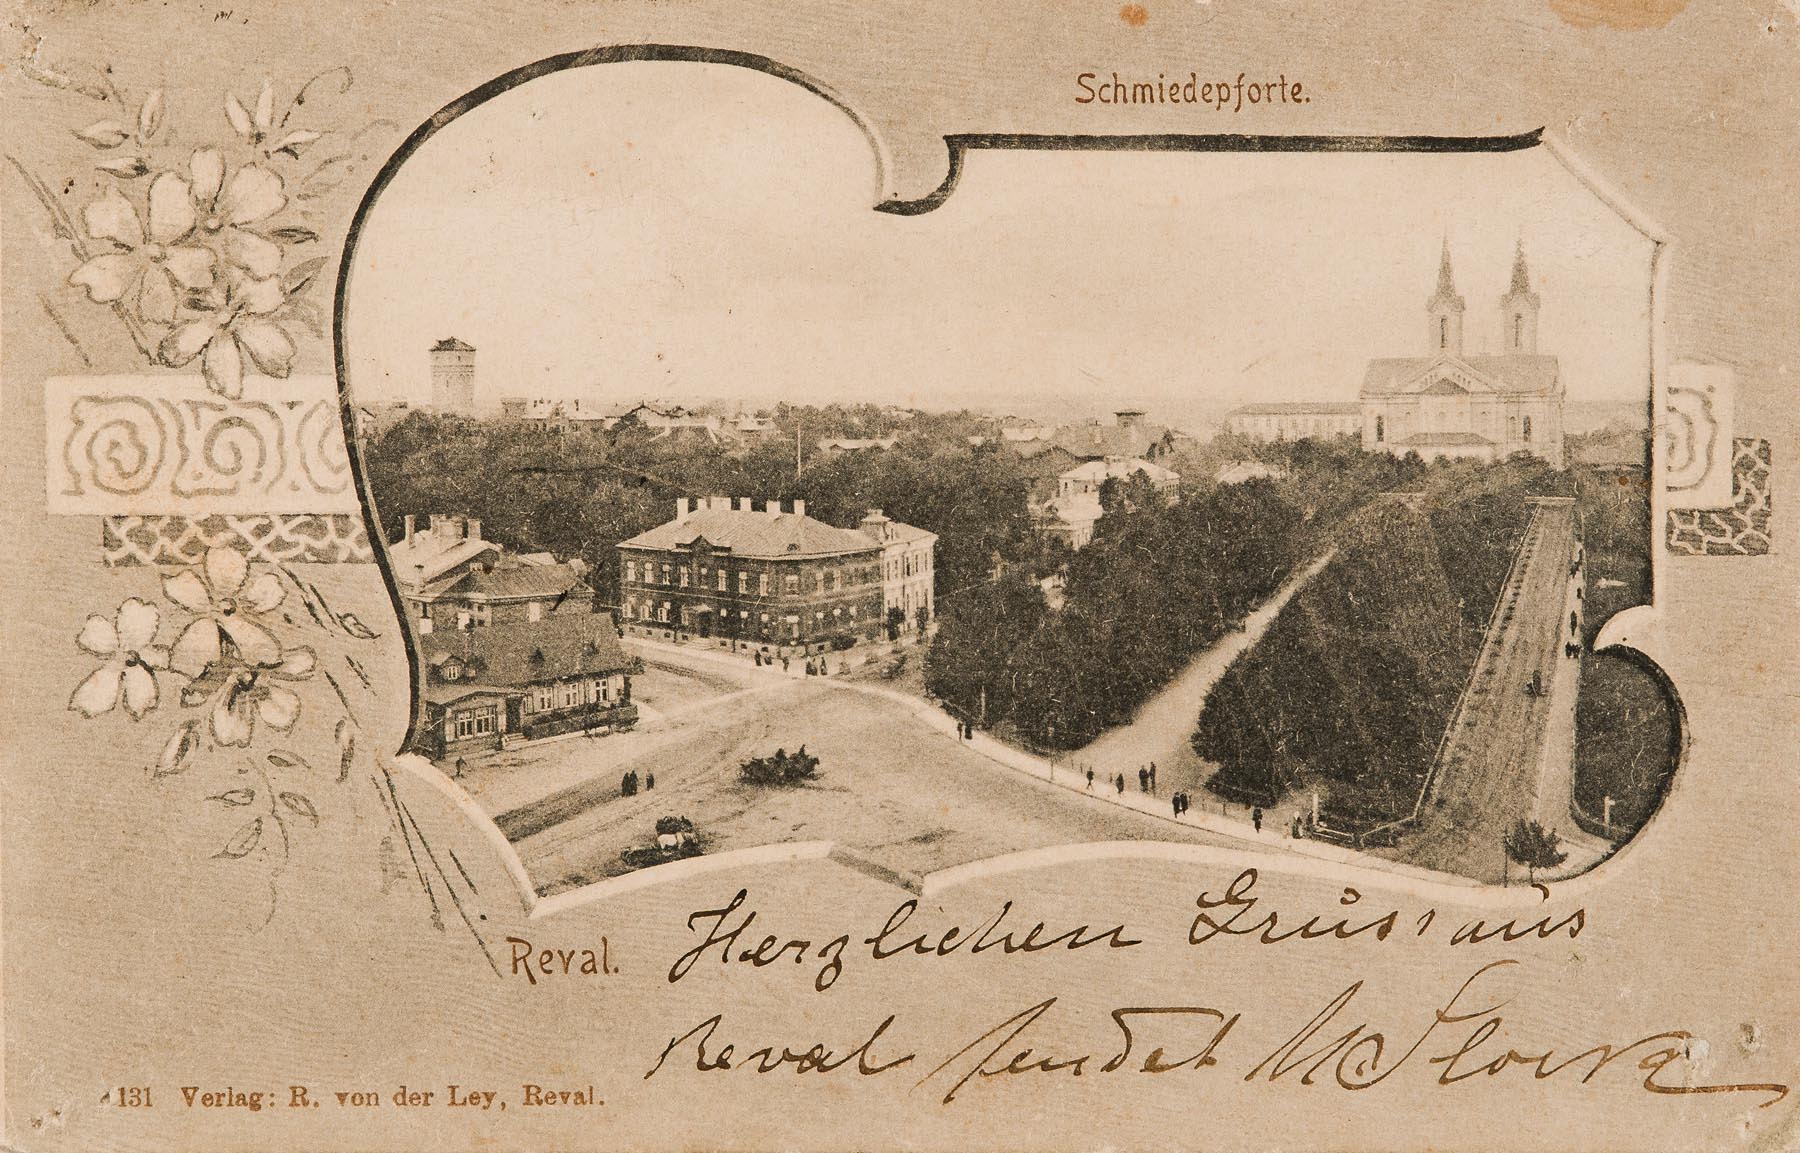 Schmiedepforte.
Reval.
Herzlichen Grüss aus
Reval sendet
131 Verlag: R. von der Ley, Reval.